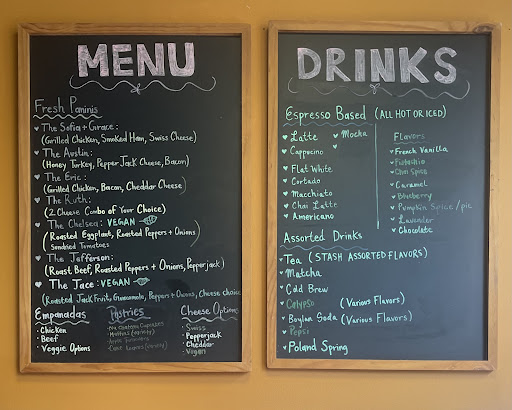 MENU
Fresh Paninis
The Sofia + Grace:
(Grilled Chicken, Smoked Ham, Swiss Cheese)
The Austin:
(Honey Turkey, Pepper Jack Cheese, Bacon)
The Eric:
(Grilled Chicken, Bacon, Cheddar Cheese)
The Ruth:
(2 Cheese Combo of Your Choice)
The Chelsea: VEGAN
(Roasted Eggplant, Roasted Peppers + Onions
Sundried Tomatoes)
The Jefferson:
(Roast Beef, Roasted Peppers + Onions, Pepperjack)
The Jace: VEGAN
(Roasted Jack Fruit, Guacamole, Peppers + Onions, Cheese choice
Empanadas
Chicken
Beef
Veggie Options
Pastries
Cheese Options
Swiss
Pepperjack
Cheddar
Vegan
DRINKS
Espresso Based (ALL HOT OR ICED)
Latte
Mocha
Cappucino
Flat White
Cortado
Macchiato
Chai Latte
Americano
Flavors
French Vanilla
Pistachio
Caramel
Blueberry
Pumpkin Spice/pie
Lavender
Chocolate
Assorted Drinks
Tea (STASH ASSORTED FLAVORS)
Matcha
Cold Brew
Calypso (Various Flavors)
Boylan Soda (Various Flavors)
Pepsi
Poland Spring